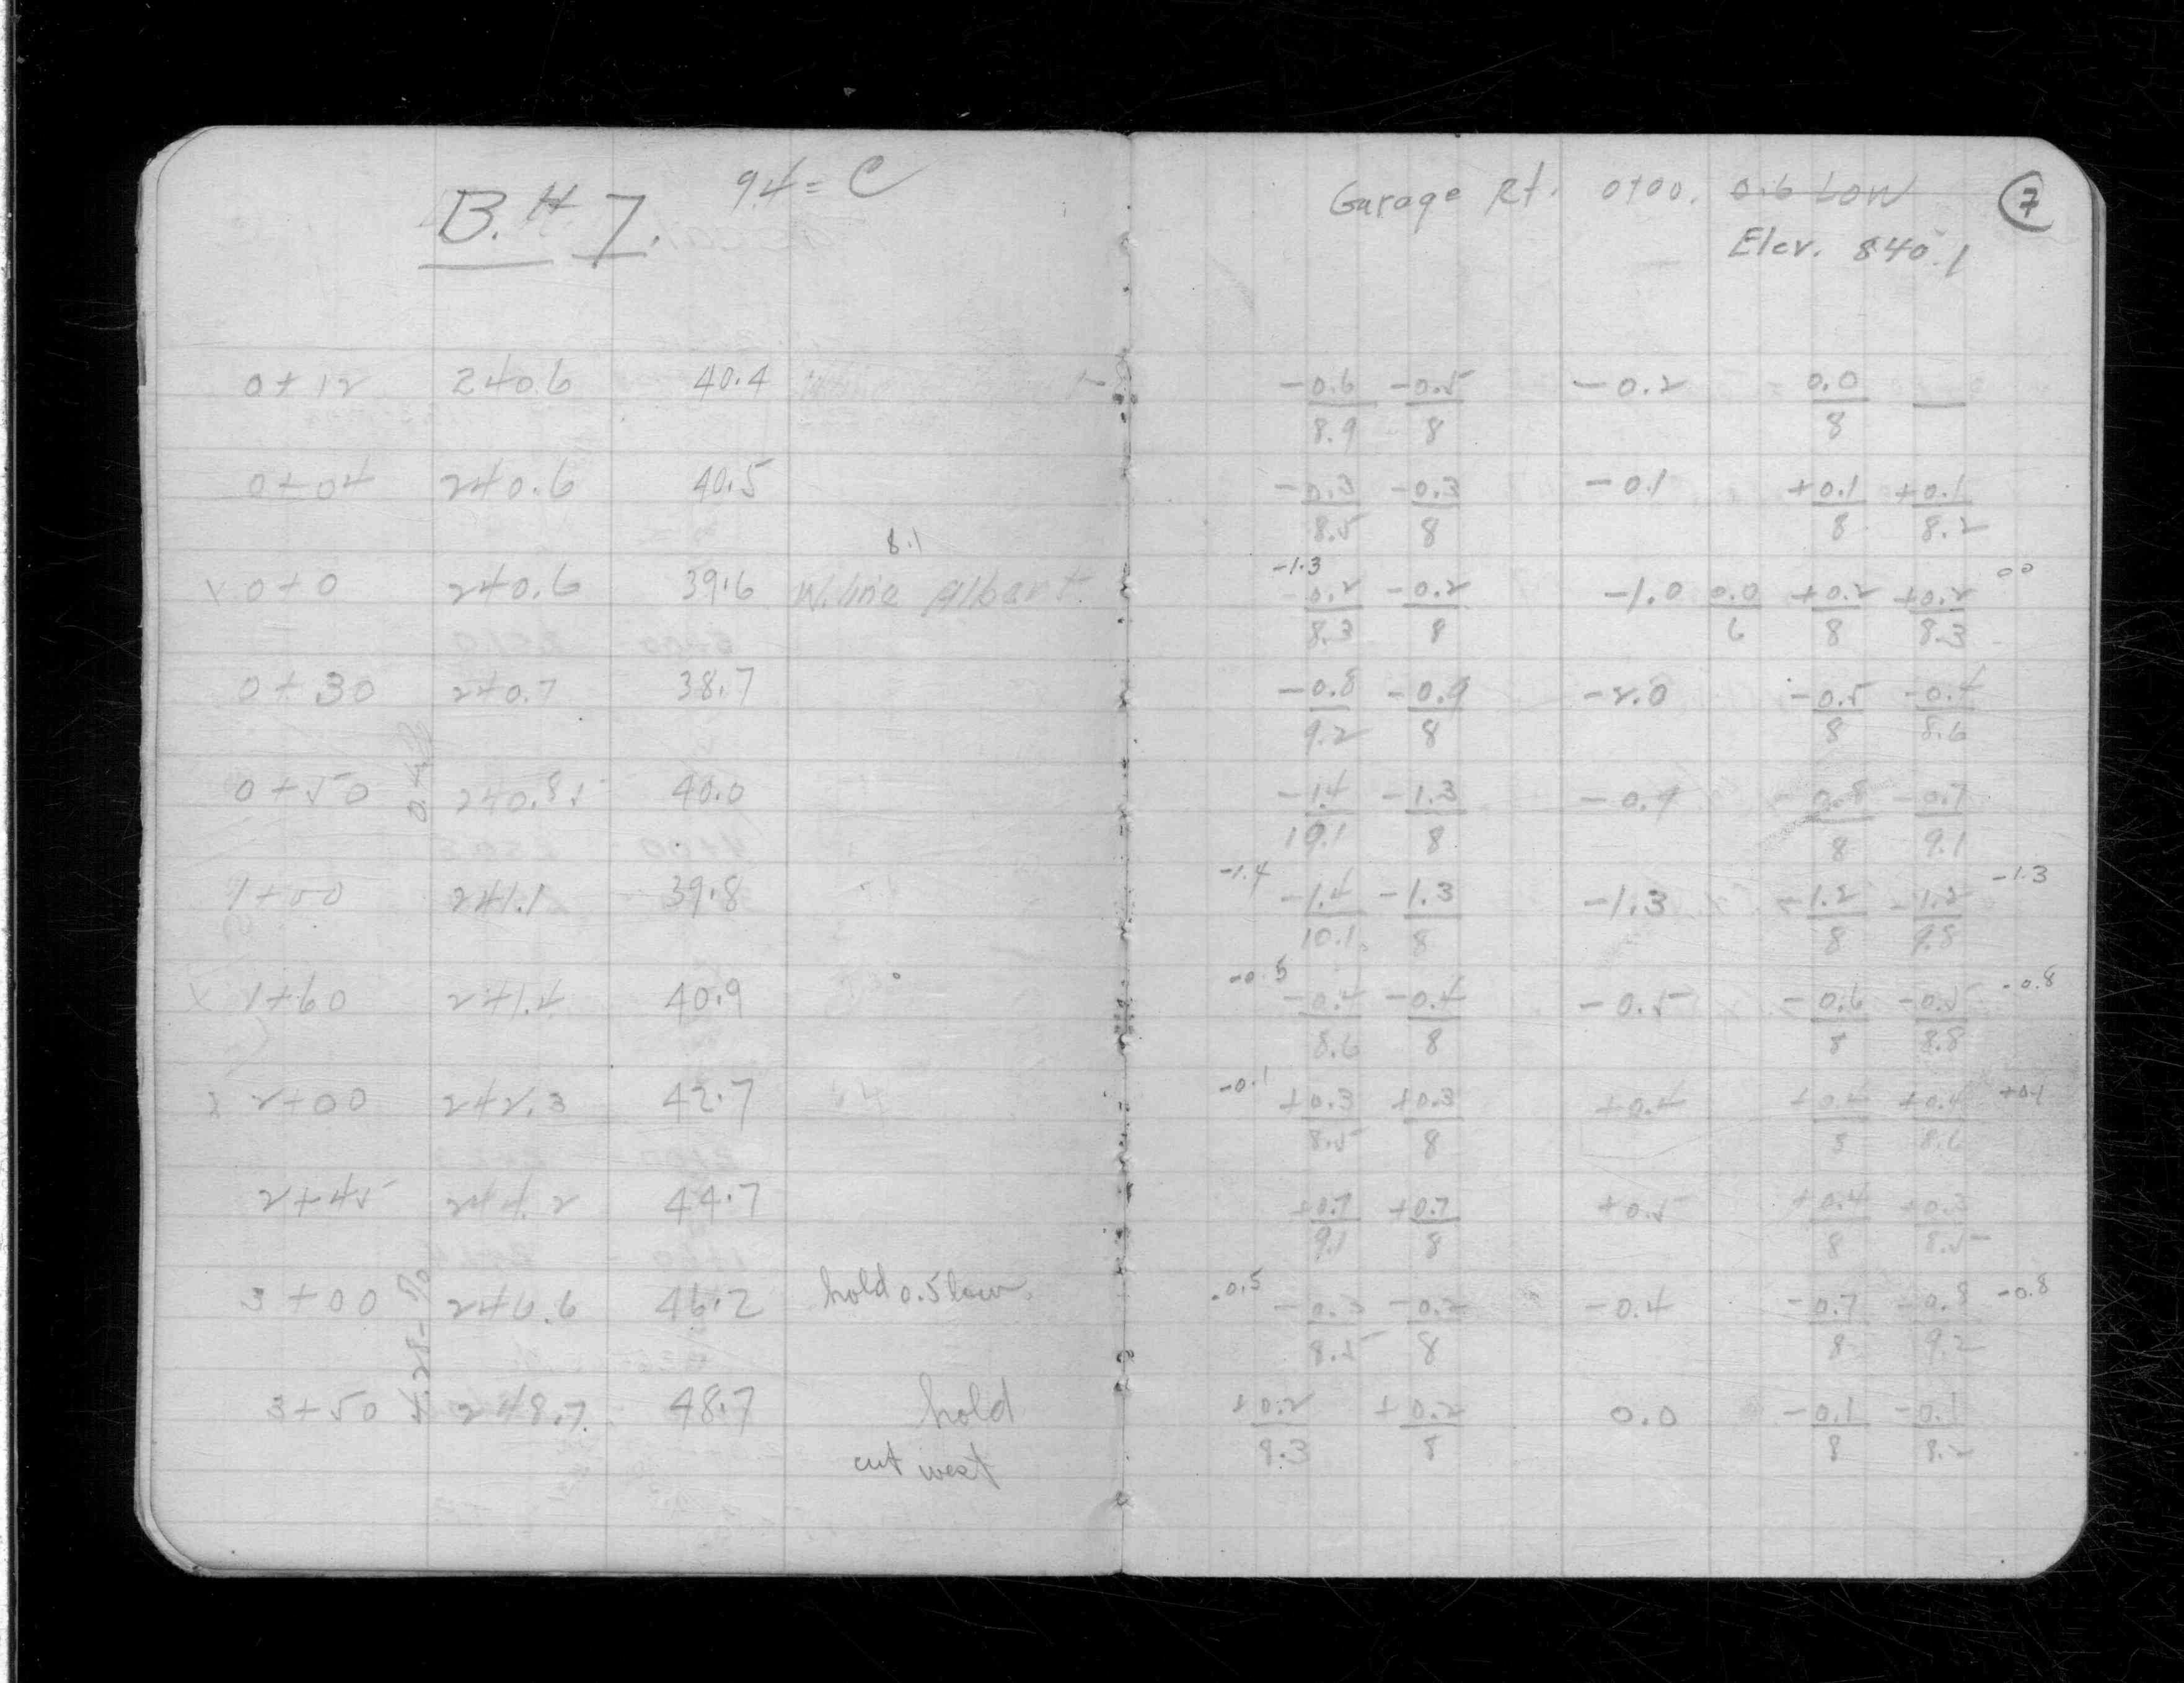 B.H 7. 94 = C
0+12 240.6 40.4
0+04 240.6 40.5
8.1
x 0+0 240.6 39.6 W. line Albert
0+30 240.7 38.7
0+50 240.85 40.0
1+00 241.1 39.8
x 1+60 241.4 40.9
x 2+00 242.3 42.7
2+45 244.2 44.7
3+00 246.6 46.2 hold 0.5 low.
3+50 248.7 48.7 hold
cut west
Garage Rt. 0+00. 0.6 LOW 7
Elev. 840.1
-0.6 -0.5 -0.2 0.0 —
8.9 8 8
-0.3 -0.3 -0.1 +0.1 +0.1
8.5 8 8 8.2
-1.3 00
-0.2 -0.2 -1.0 0.0 +0.2 +0.2
8.3 8 6 8 8.3
-0.8 -0.9 -2.0 -0.5 -0.4
9.2 8 8 8.6
-1.4 -1.3 -0.9 -0.8 -0.7
10.1 8 8 9.1
-1.4 -1.3
-1.4 -1.3 -1.3 -1.2 -1.2
10.1 8 8 9.8
-0.5 -0.8
-0.4 -0.4 -0.5 -0.6 -0.5
8.6 8 8 8.8
-0.1 +0.1
+0.3 +0.3 +0.4 +0.4 +0.4
8.5 8 8 8.6
+0.7 +0.7 +0.5 +0.4 +0.3
9.1 8 8 8.5
-0.5 -0.8
-0.4 -0.7 -0.8
8.5 8 8 9.2
+0.2 +0.2 0.0 -0.1 -0.1
8.3 8 8 8.2